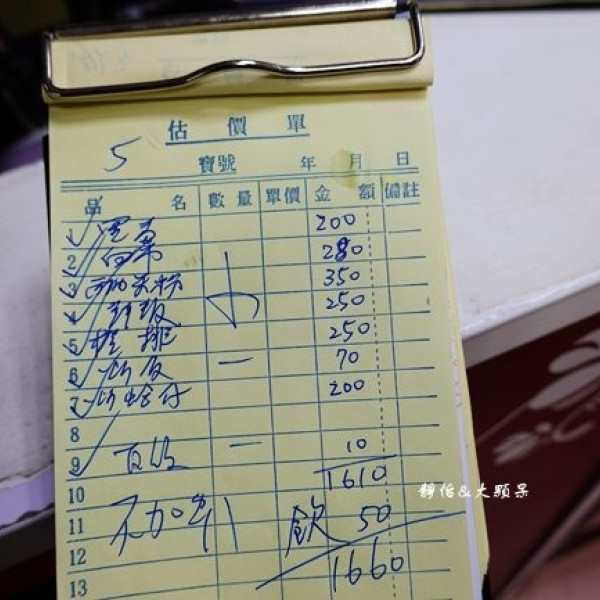 估價單
5 寶號 年 月 日
品名 數量 單價 金額 備註
1 200
2 280
3 米粉 350
4 250
5 排 250
6 炒飯 一 70
7 炒蛤仔 200
8
9 白飯 一 10
10 1610
11 不加 飲 50
12 1660
13
靜怡&大顆呆